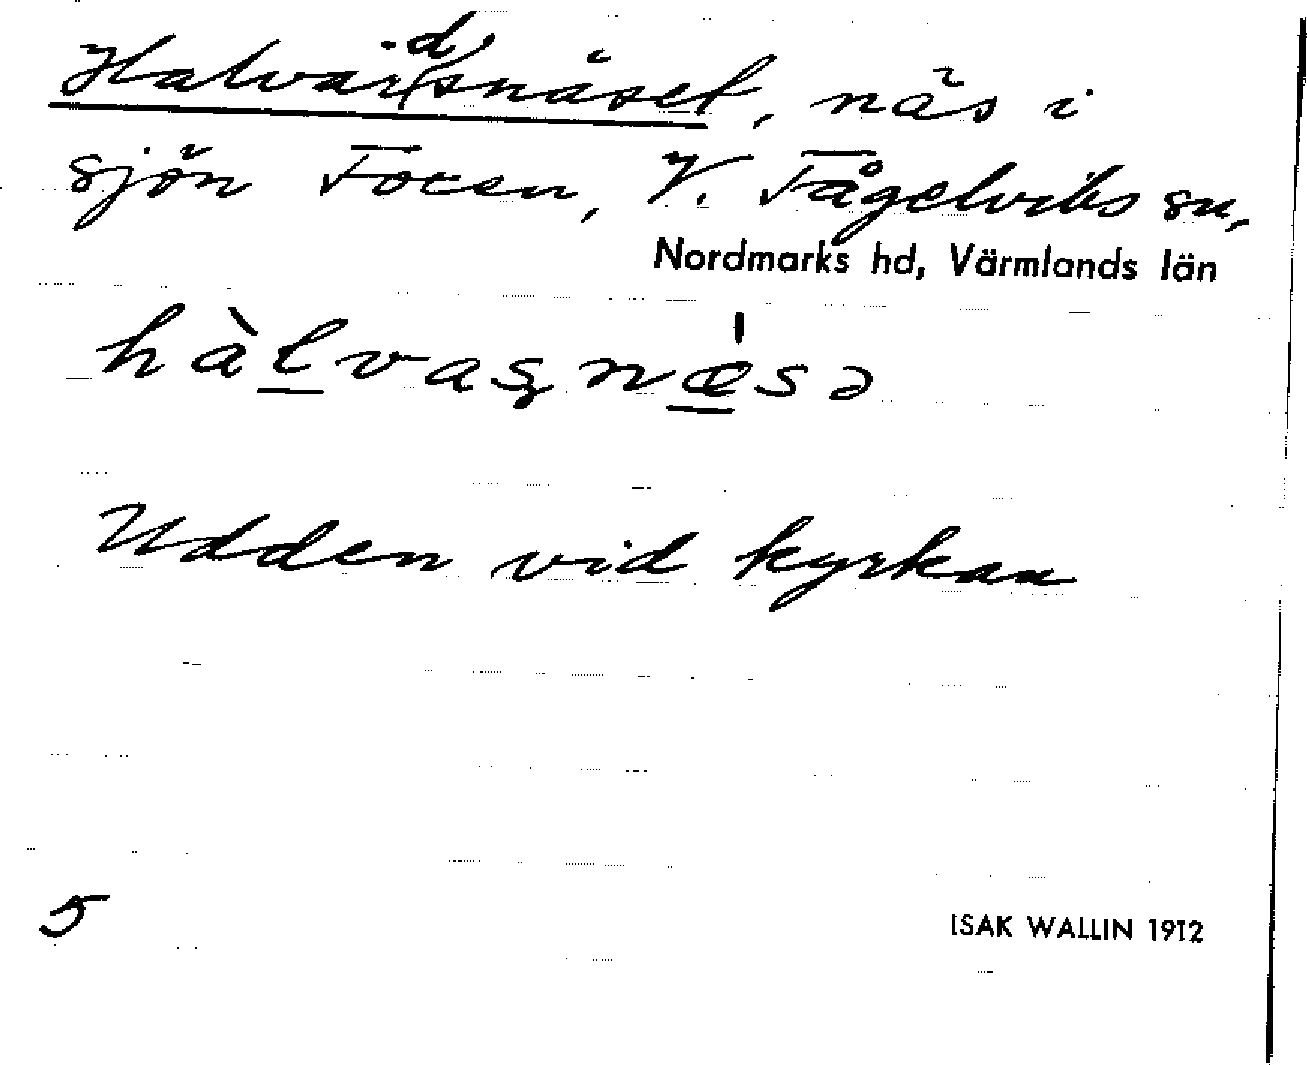 Halvardsnäset, näs i
sjön Foxen, V. Fågelviks sn,
Nordmarks hd, Värmlands län
hàlvaʂnæ̍sə
Udden vid kyrkan
5
ISAK WALLIN 1912